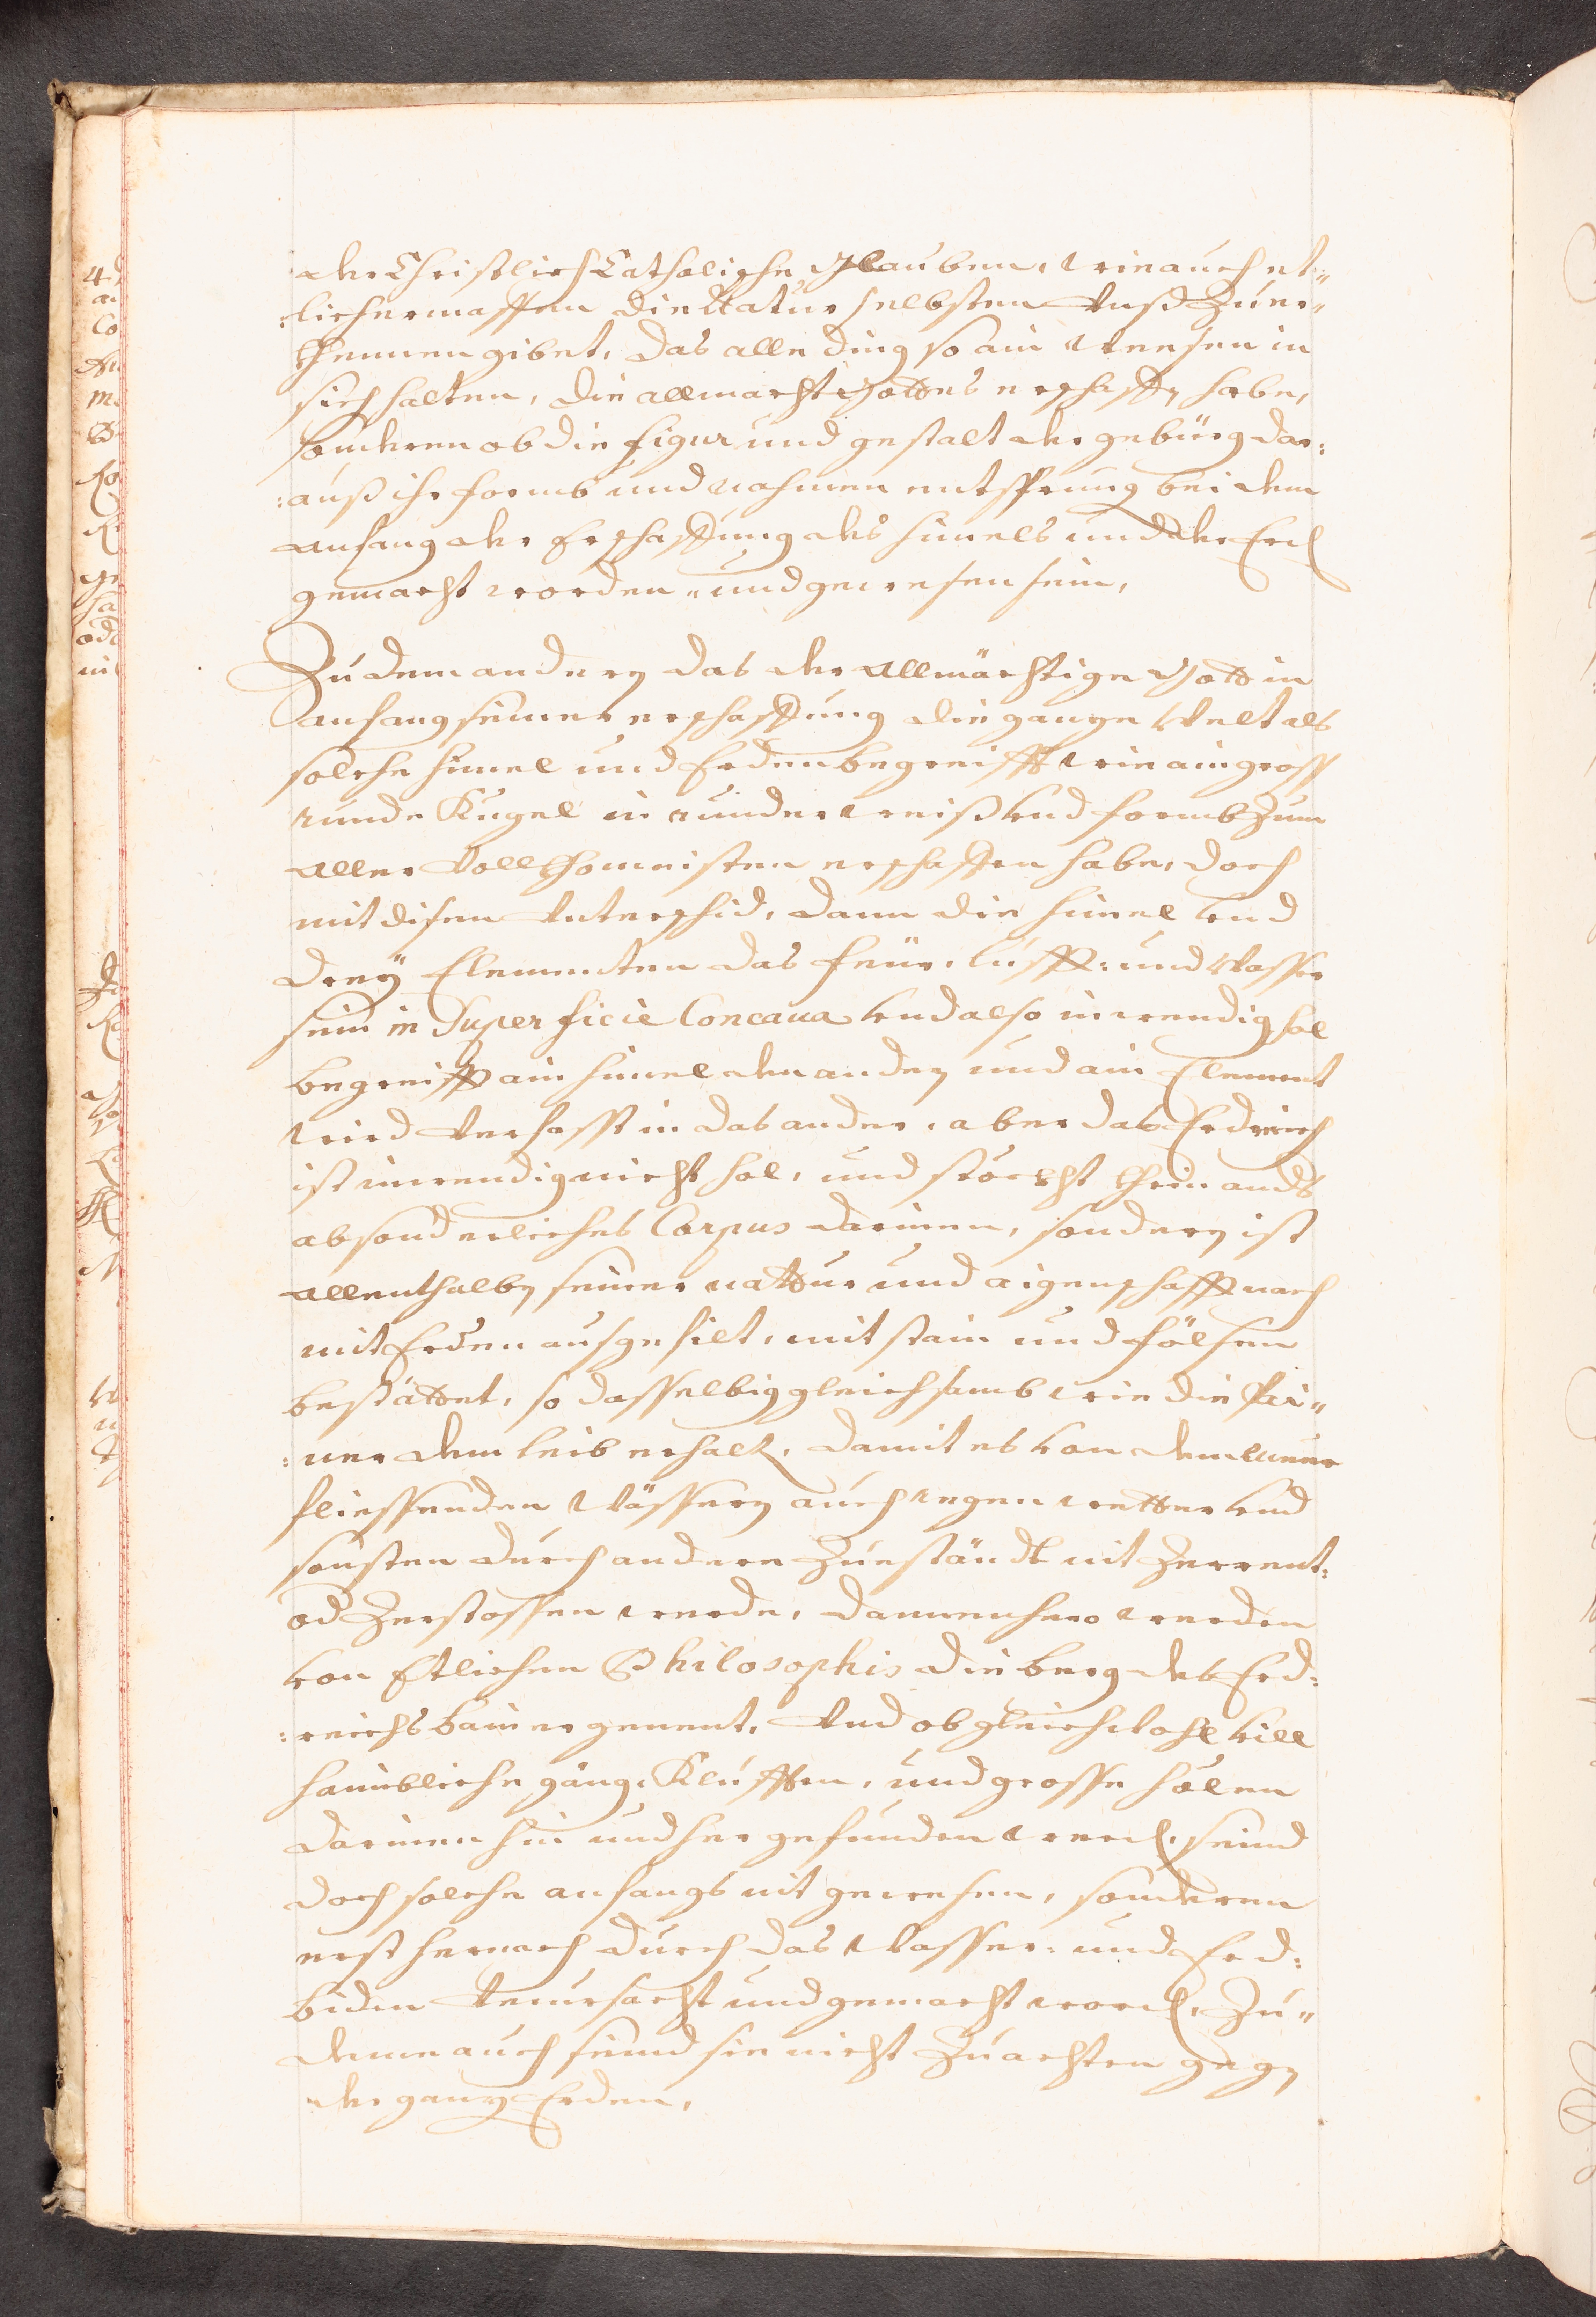 der Christlich Catholische Glauben, wie auch et¬
lichermassen die Natur selbsten Unß Zuer¬
khennen gibet, das alle ding so ain weesen in
sich halten, die allmacht Gottes erschaffen habe,
sonderen ob die figur und gestalt der gebürg dar¬
auß ihr formb und nahmen entsprung bei dem
anfang der Erschaffung des himels und der Erd
gemacht worden, und gewesen sein,
Zu dem anderen das der Allmächtige Gott in
anfang seiner erschaffung die gantze Welt als
solche himel und Erden begreifft wie ain gross
runde Kugel in runder weiß und formb Zum
aller Vollkhomnisten erschaffen habe, doch
mit disem Unterschid, dann die himel und
dreÿ Elementen das feür, lufft: und Wasser
sein in Superficie Concaua und also inwendig hol
begreifft ain himel den anderen und ain Element
wird verfasst in das ander, aber das Erdreich
ist inwendig nicht hol, und steckht khein anders
absonderliches Corpus darinen, sonderen ist
allenthalben seiner nattur und aigenschafft nach
mit Erden ausgefilt, mit stain und fölsen
bestättet, so dasselbig gleichsamb wie die Pai¬
ner dem leib erhalt, damit es von dem
fliessenden Wässeren auch regen wetter und
sonsten durch andere Zueständt nit Zerrent:
od Zerstossen werde, dannenhero werden
von Etlichen Philosophis die berg des Erd:
reichs bainer genent, Und ob gleichwohl vill
haimbliche gäng, Klufften, und grosse hölen
darinen hin und her gefunden werd, seind
doch solche anfangs nit gewesen, sonderen
erst hernach durch das Wasser: und Erd:
biden verursacht und gemacht word, Zu¬
deme auch seind sie nicht Zuachten gegen
der gantz Erden,